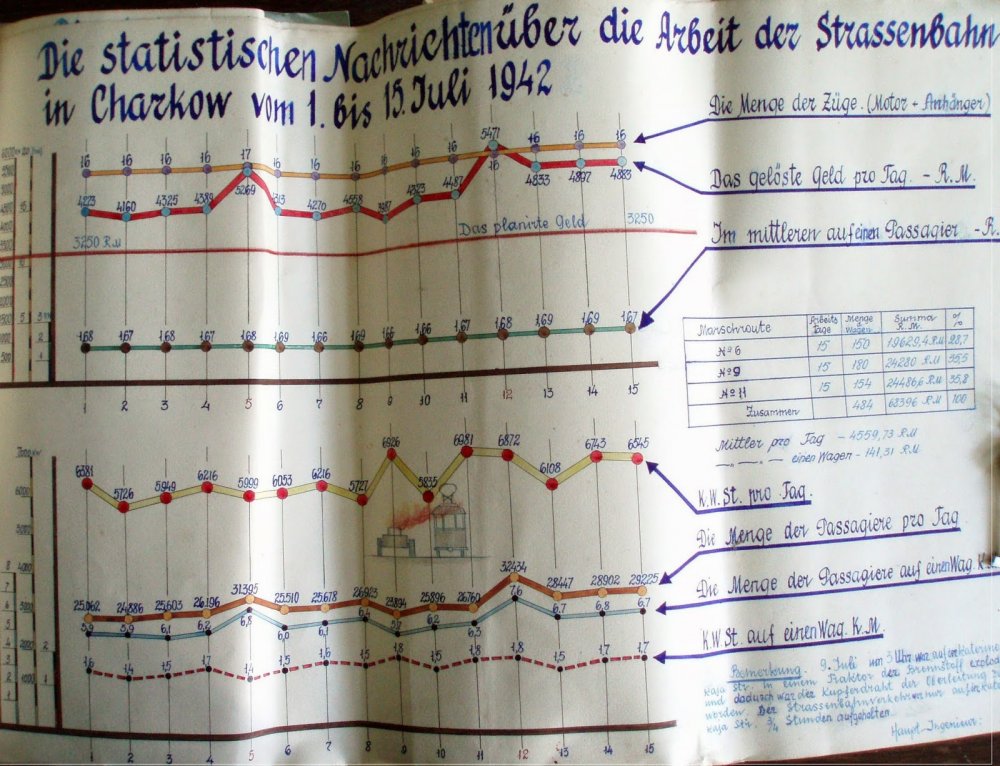 Die statistischen Nachrichten über die Arbeit der Strassenbahn
in Charkow vom 1. bis 15. Juli 1942
Die Menge der Züge. (Motor + Anhänger)
16 16 16 16 17 16 16 16 16 16 16 16 16 16
5471
4223 4160 4325 4389 5269 4270 4558 4323 4487 4833 4897 4883
Das gelöste Geld pro Tag. - R.M.
3250 R.M
Das planirte Geld
3250
Im mittleren auf einen Passagier - R.
1,68 1,67 1,68 1,67 1,68 1,69 1,66 1,69 1,66 1,66 1,67 1,68 1,69 1,69 1,67
1 2 3 4 5 6 7 8 9 10 11 12 13 14 15
Marschroute Arbeits Tage Menge Wagen Summa R.M. %
№ 6 15 150 19629,4 R.M 28,7
№ 9 15 180 24280 R.M 35,5
№ 11 15 154 24486,6 R.M 35,8
Zusammen 484 68396 R.M 100
Mittler pro Tag - 4559,73 R.M
einen Wagen - 141,31 R.M
6381 5726 5949 6216 5999 6033 6216 5727 6926 5835 6981 6872 6108 6743 6545
K.W.St. pro Tag.
Die Menge der Passagiere pro Tag
25.062 24,886 25,603 26.196 31.395 25.510 25.678 26903 25894 25896 26760 32434 28447 28902 29225
Die Menge der Passagiere auf einen Wag. K.
5,9 5,9 6,1 6,2 6,8 6,0 6,1 6,2 6,3 7,6 6,7 6,8 6,7
K.W.St. auf einen Wag. K.M.
1,6 1,4 1,5 1,7 1,4 1,5 1,6 1,5 1,8 1,5 1,8 1,8 1,5 1,7 1,7
1 2 3 4 5 6 7 8 9 10 11 12 13 14 15
Bemerkung. 9. Juli um 3 Uhr war auf
kaja Str. in einem Traktor der Brennstoff
und dadurch war der Kupferdraht der Oberleitung
worden. Der Strassenbahnverkehr war auf
kaja Str. 3/4 Stunden aufgehalten.
Haupt-Ingenieur: